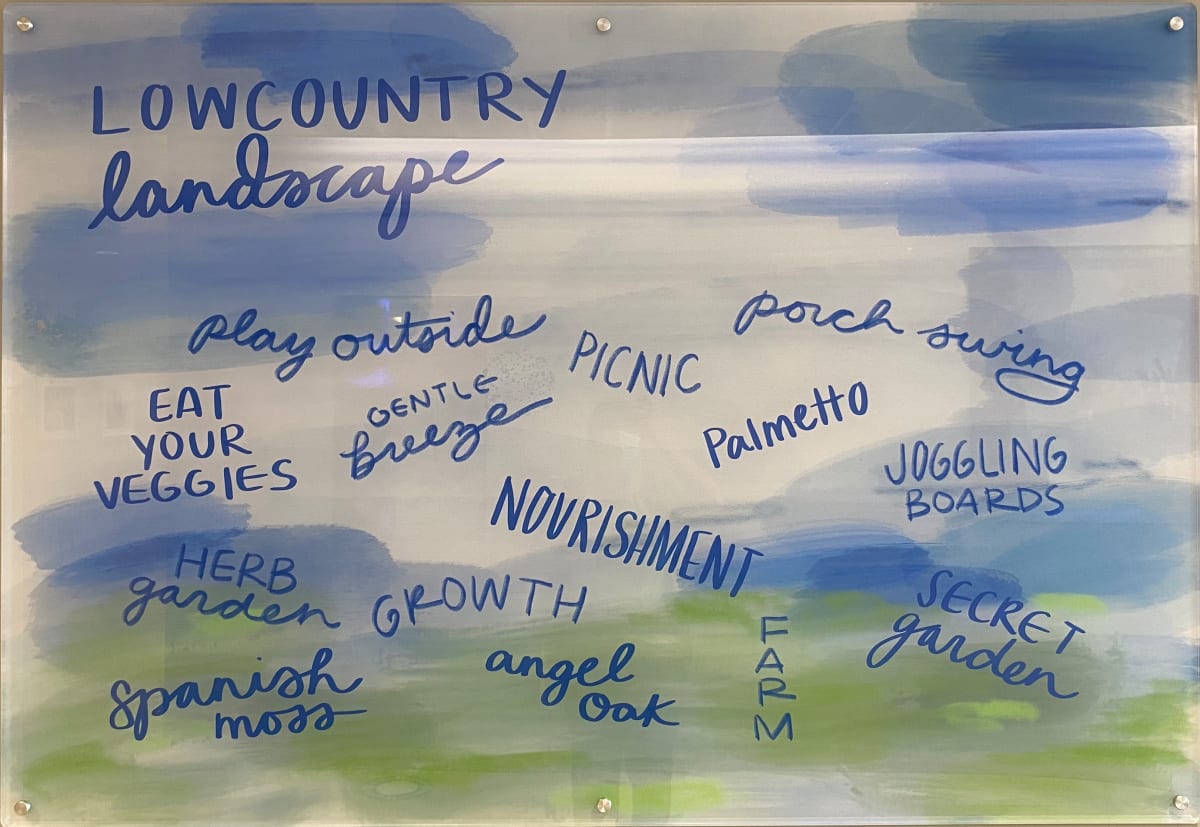 LOWCOUNTRY
landscape
play outside
PICNIC
porch swing
EAT
YOUR
VEGGIES
GENTLE
breeze
Palmetto
JOGGLING
BOARDS
NOURISHMENT
HERB
garden
GROWTH
SECRET
garden
spanish
moss
angel
oak
F
A
R
M